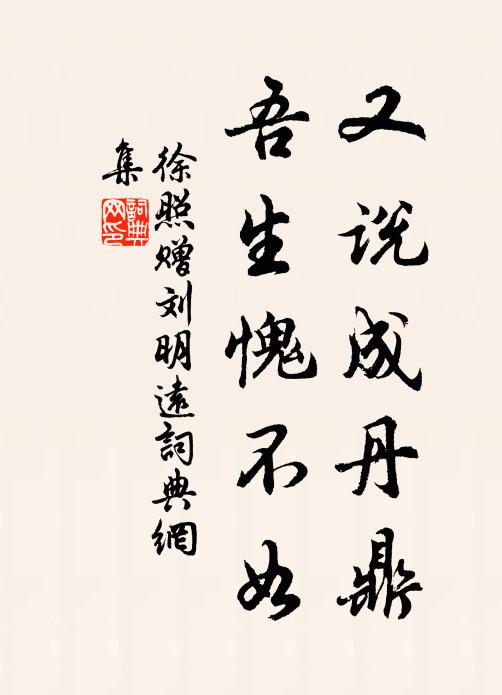 又说成丹鼎
吾生愧不如
徐照赠刘明远詞典網
集
詞典
网印